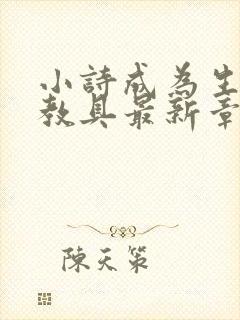 小詩成為生
教具最新章
陳天策